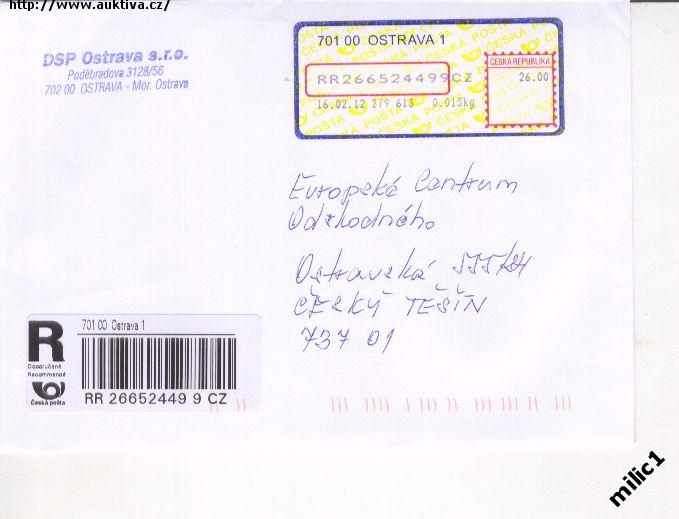 http://www.auktiva.cz/
DSP Ostrava s.r.o.
Poděbradova 3128/56
702 00 OSTRAVA - Mor. Ostrava
701 00 OSTRAVA 1
ČESKÁ REPUBLIKA
RR266524499CZ
26.00
16.02.12 279 613 0.013kg
ČESKÁ POŠTA
Evropské Centrum
Odškodného
Ostravská
ČESKÝ TĚŠÍN
737 01
R
701 00 Ostrava 1
Doporučeně
Recommandé
Česká pošta
RR 26652449 9 CZ
milic1